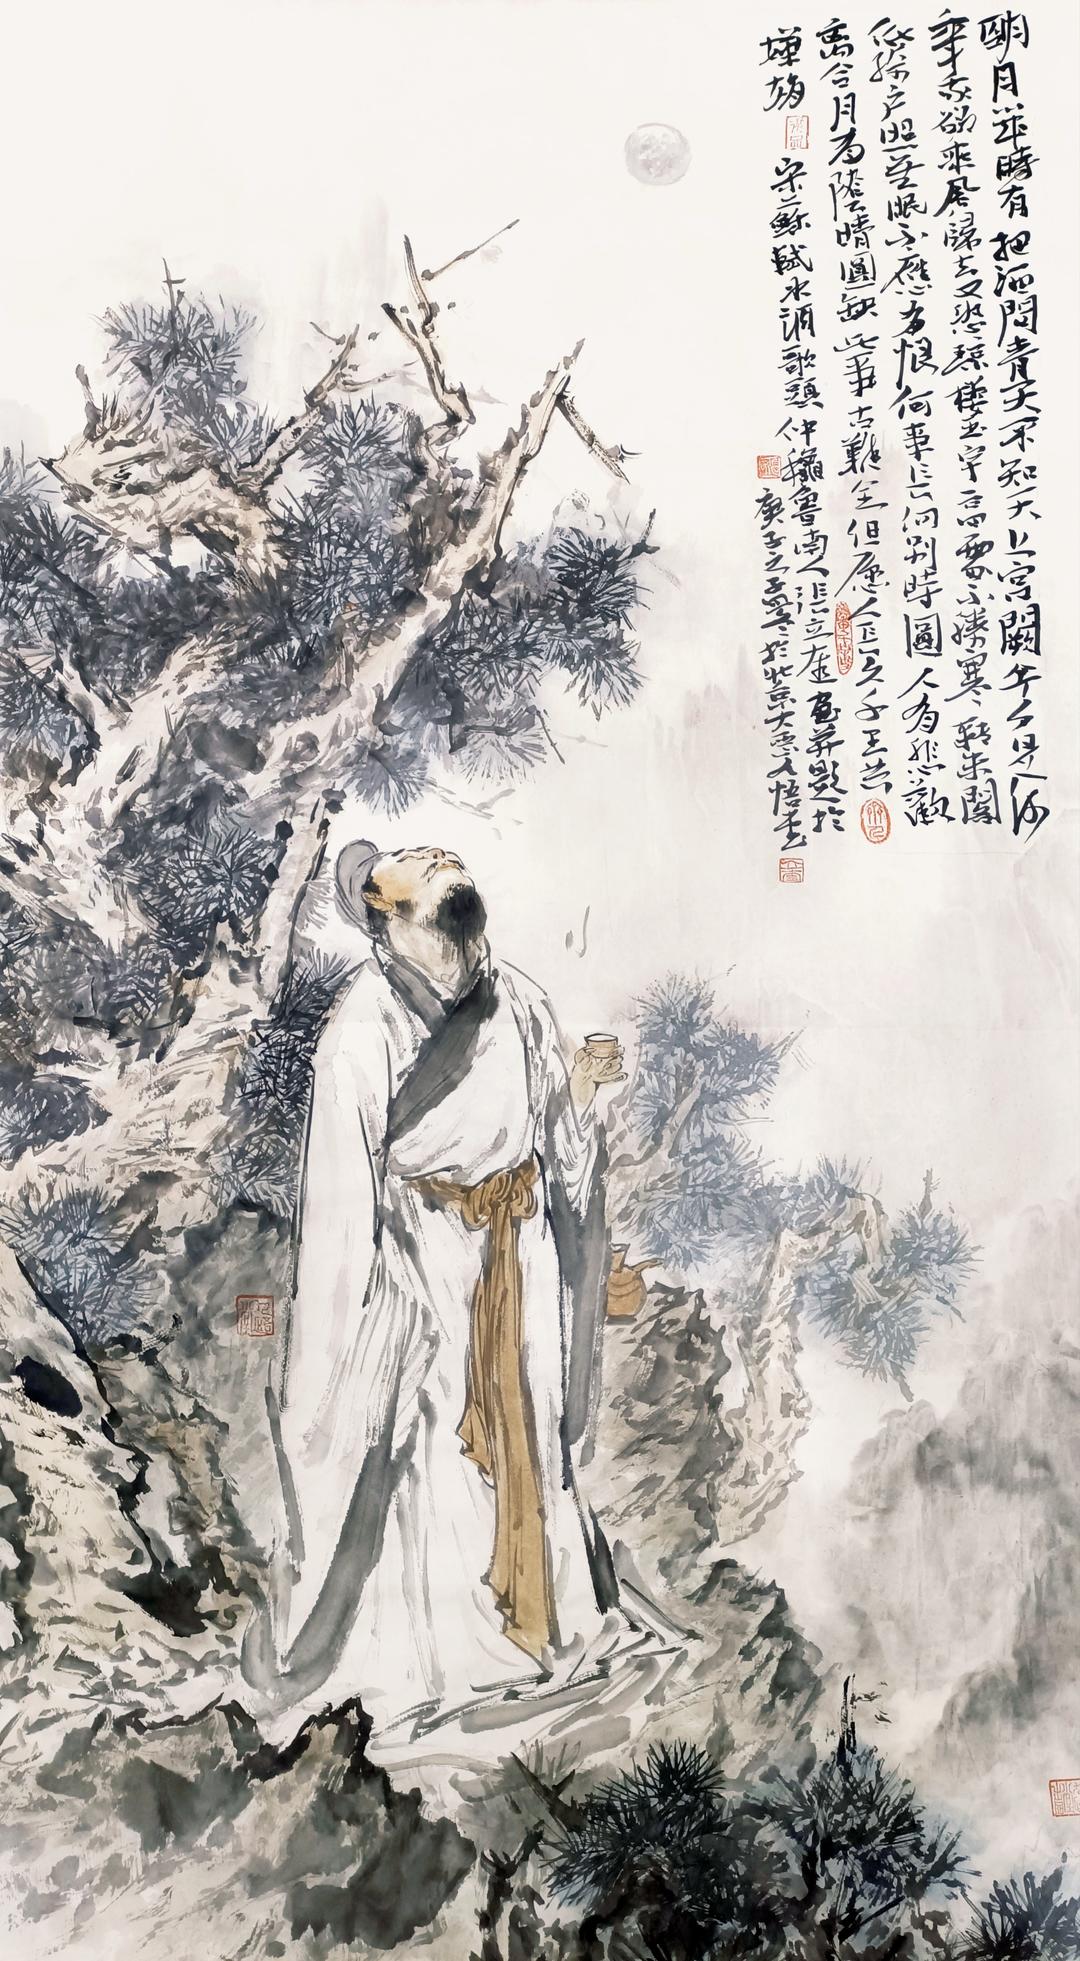 明月幾時有把酒問青天不知天上宮闕今夕是何
年我欲乘風歸去又恐瓊樓玉宇高處不勝寒轉朱閣
低綺戶照無眠不應有恨何事長向別時圓人有悲歡
離合月有陰晴圓缺此事古難全但願人長久千里共
嬋娟
宋蘇軾水調歌頭仲龝魯南人張立奎畫并題於
庚子之於北京大悟堂